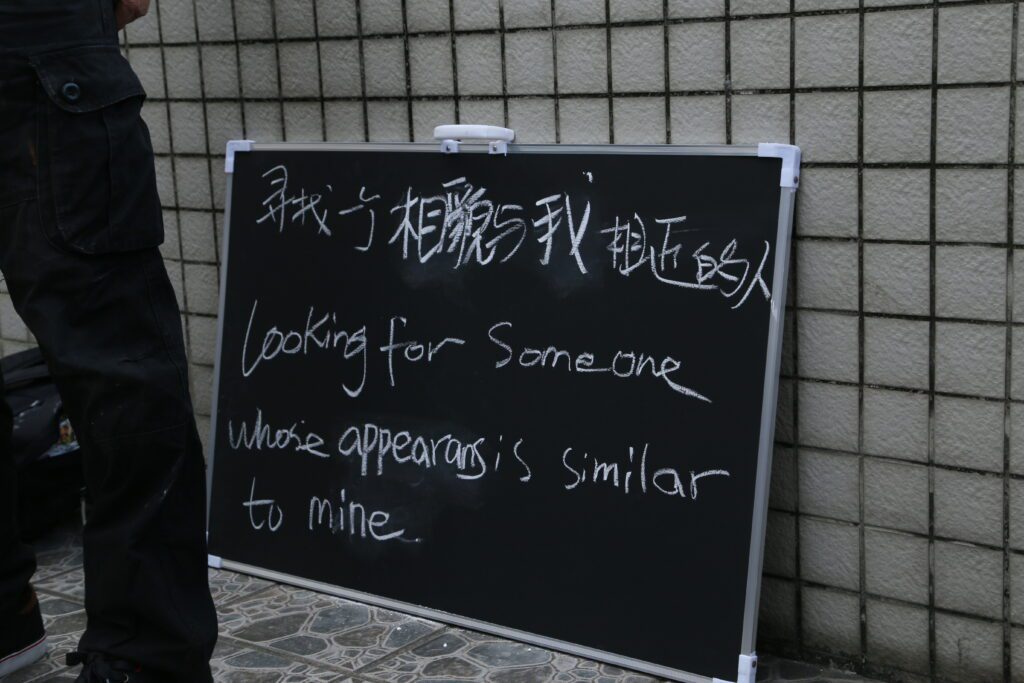 寻找一个相貌与我相近的人
Looking for Someone
whose appearans is similar
to mine.